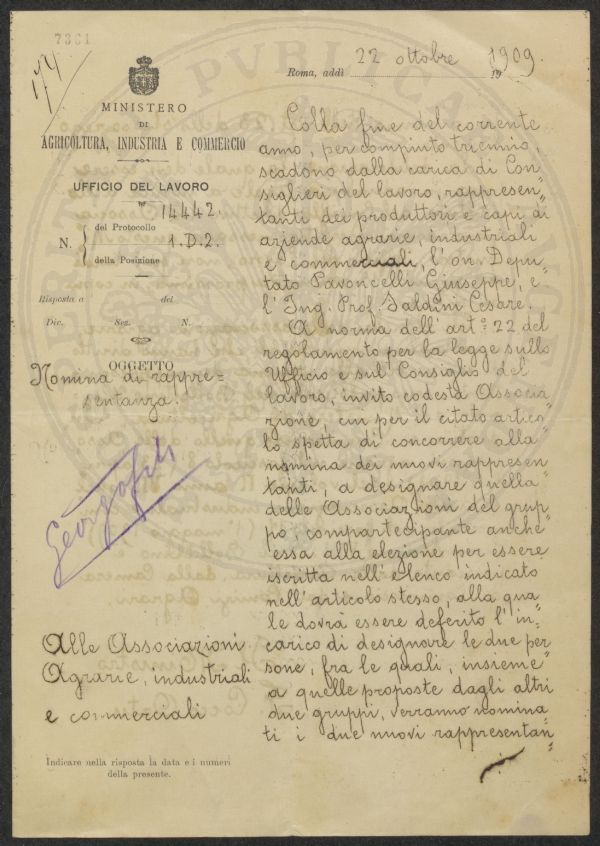 7361
174
MINISTERO
DI
AGRICOLTURA, INDUSTRIA E COMMERCIO
UFFICIO DEL LAVORO
N. del Protocollo 14442.
della Posizione 1.D.2.
Risposta a del
Div. Sez. N.
OGGETTO
Nomina di rappre=
sentanza.
Georgofili
Alle Associazioni
Agrarie, industriali
e commerciali
Indicare nella risposta la data e i numeri
della presente.
Roma, addì 22 ottobre 1909.
Colla fine del corrente
anno, per compiuto triennio,
scadono dalla carica di Con=
siglieri del lavoro, rappresen=
tanti dei produttori e capi di
aziende agrarie, industriali
e commerciali, l'on. Depu=
tato Pavoncelli Giuseppe, e
l'Ing. Prof. Saldini Cesare.
A norma dell'art.º 22 del
regolamento per la legge sullo
Ufficio e sul Consiglio del
lavoro, invito codesta Associa=
zione, cui per il citato artico=
lo spetta di concorrere alla
nomina dei nuovi rappresen=
tanti, a designare quella
delle Associazioni del grup=
po, compartecipante anche
essa alla elezione per essere
iscritta nell'elenco indicato
nell'articolo stesso, alla qua=
le dovrà essere deferito l'in=
carico di designare le due per=
sone, fra le quali, insieme
a quelle proposte dagli altri
due gruppi, verranno nomina=
ti i due nuovi rappresentan=